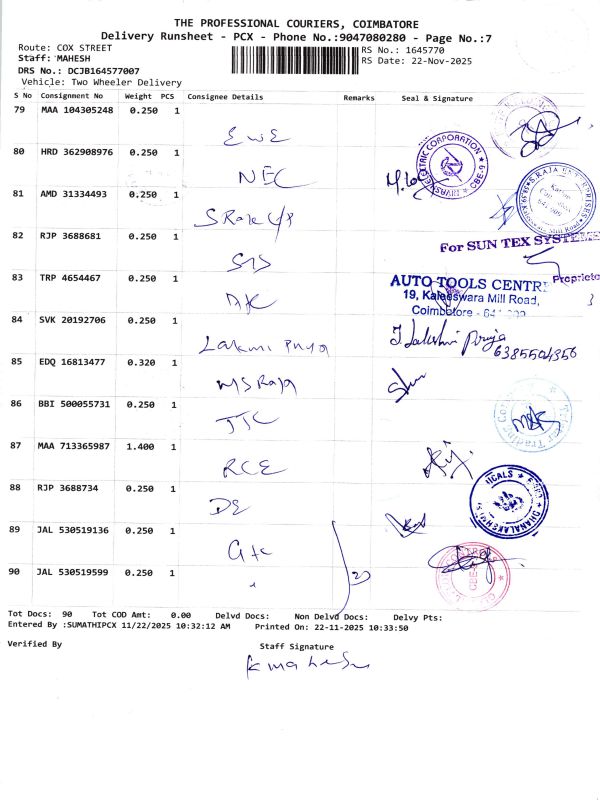 THE PROFESSIONAL COURIERS, COIMBATORE
Delivery Runsheet - PCX - Phone No.:9047080280 - Page No.:7
Route: COX STREET
RS No.: 1645770
Staff: MAHESH
RS Date: 22-Nov-2025
DRS No.: DCJB164577007
Vehicle: Two Wheeler Delivery
S No Consignment No Weight PCS Consignee Details Remarks Seal & Signature
79 MAA 104305248 0.250 1
EWE
80 HRD 362908976 0.250 1
NEC
81 AMD 31334493 0.250 1
82 RJP 3688681 0.250 1
STS
For SUN TEX SYSTEMS
Proprietor
83 TRP 4654467 0.250 1
AUTO TOOLS CENTRE
19, Kaleeswara Mill Road,
Coimbatore -
84 SVK 20192706 0.250 1
Lakmi Priya
J Lakshmi Priya
6385504356
85 EDQ 16813477 0.320 1
MS Raja
86 BBI 500055731 0.250 1
JTC
87 MAA 713365987 1.400 1
RCE
88 RJP 3688734 0.250 1
DE
89 JAL 530519136 0.250 1
90 JAL 530519599 0.250 1
Tot Docs: 90 Tot COD Amt: 0.00 Delvd Docs: Non Delvd Docs: Delvy Pts:
Entered By :SUMATHIPCX 11/22/2025 10:32:12 AM Printed On: 22-11-2025 10:33:50
Verified By
Staff Signature
K Mahesh